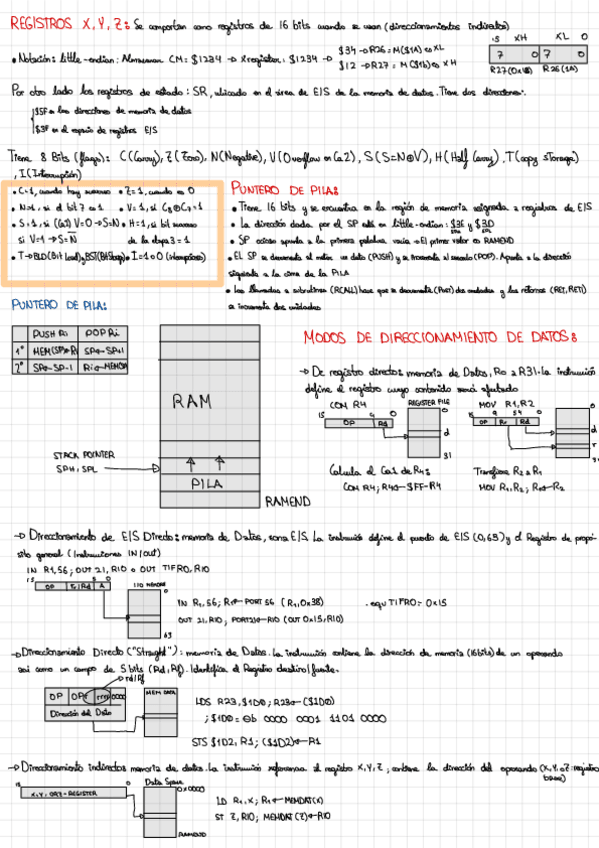 REGISTROS X,Y,Z: Se comportan como registros de 16 bits cuando se usan (direccionamientos indirectos)
15 XH XL 0
7 0 7 0
R27(0x1B) R26(1A)
• Notación: little-endian: Almacenan CM: $1234 → Xregister: $1234 →
$34→R26=M($1A) ⇔ XL
$12→R27=M($1B) ⇔ XH
Por otro lado los registros de estado: SR, ubicado en el área de E/S de la memoria de datos. Tiene dos direcciones:
$5F en las direcciones de memoria de datos
$3F en el espacio de registros E/S
Tiene 8 Bits (flags): C(Carry), Z(Zero), N(Negative), V(Overflow en Ca2), S(S=N⊕V), H(Half carry), T(copy storage)
, I(Interrupción)
• C=1, cuando hay • Z=1, cuando es 0
• N=1, si el bit 7 es 1 • V=1, si C8⊕C7=1
• S=1, si (Ca2) V=0→S=N • H=1, si bit
si V=1→S=N̅ de la etapa 3=1
• T→BLD(Bit load) y BST(Bit Stop) • I=1 o 0
PUNTERO DE PILA:
• Tiene 16 bits y se encuentra en la región de memoria asignada a registros de E/S
• La dirección dada por el SP está en little-endian: $3E y $3D
• SP apunta a la primera palabra vacía → El primer valor es RAMEND
• EL SP se decrementa al meter un dato (PUSH) y se incrementa al sacarlo (POP). Apunta a la dirección
siguiente a la cima de la PILA
• Las llamadas a subrutina (RCALL) hace que se decremente (Post) dos unidades y los retornos (RET, RETI)
se incrementa dos unidades
PUNTERO DE PILA:
PUSH Ri POP Ri
1º MEM(SP)←R SP←SP+1
2º SP←SP-1 Ri←MEM(SP)
RAM
STACK POINTER
SPH, SPL
PILA
RAMEND
MODOS DE DIRECCIONAMIENTO DE DATOS:
→ De registro directo: memoria de Datos, R0 a R31. La instrucción
define el registro cuyo contenido será afectado
COM R4 REGISTER FILE MOV R1,R2
15 4 0 0 15 9 5 4 0 0
OP Rd OP Rr Rd
d d
r
31 31
Calcula el Ca1 de R4: Transfiere R2 a R1
COM R4; R4←$FF-R4 MOV R1,R2; R1←R2
→ Direccionamiento de E/S Directo: memoria de Datos, zona E/S. La instrucción define el puerto de E/S (0,63) y el Registro de propó-
sito general (Instrucciones IN/OUT)
IN R1,56; OUT 21, R10 o OUT TIFR0, R10
15 5 0 I/O MEMORY
OP Rr/Rd A 0
63
IN R1,56; R1←PORT56 (R1,0x38) .equ TIFR0=0x15
OUT 21, R10; PORT21←R10 (OUT 0x15, R10)
→ Direccionamiento Directo ("Straight"): memoria de Datos. La instrucción contiene la dirección de memoria (16bits) de un operando
así como un campo de 5 bits (Rd, Rf). Identifica el Registro destino/fuente.
rd/Rf
OP OPr rrrr 0000
Dirección del Dato
MEM DATA
LDS R23,$1D0; R23←($1D0)
; $1D0=0b 0000 0001 1101 0000
STS $1D2, R1; ($1D2)←R1
→ Direccionamiento indirecto: memoria de datos. La instrucción referencia al registro X,Y,Z; contiene la dirección del operando (X,Y, o Z: registro
base)
15 0 Data Space
X,Y, OR Z-REGISTER 0x0000
RAMEND
LD R1, X; R1←MEMDAT(X)
ST Z, R10; MEMDAT(Z)←R10